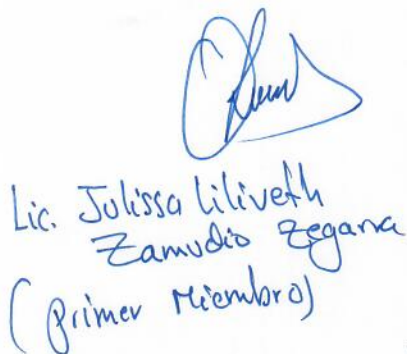 Lic. Julissa Liliveth
Zamudio Zegarra
(Primer Miembro)